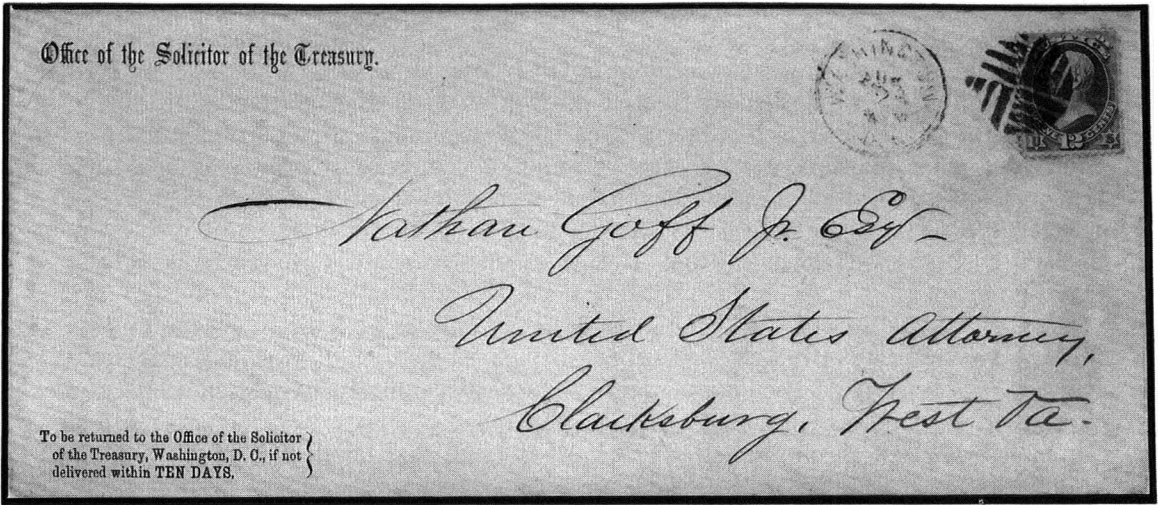 Office of the Solicitor of the Treasury.
WASHINGTON
Nathan Goff Jr. Esq
United States Attorney,
Clarksburg, West Va.
To be returned to the Office of the Solicitor
of the Treasury, Washington, D. C., if not
delivered within TEN DAYS.
U 12 S
CENTS